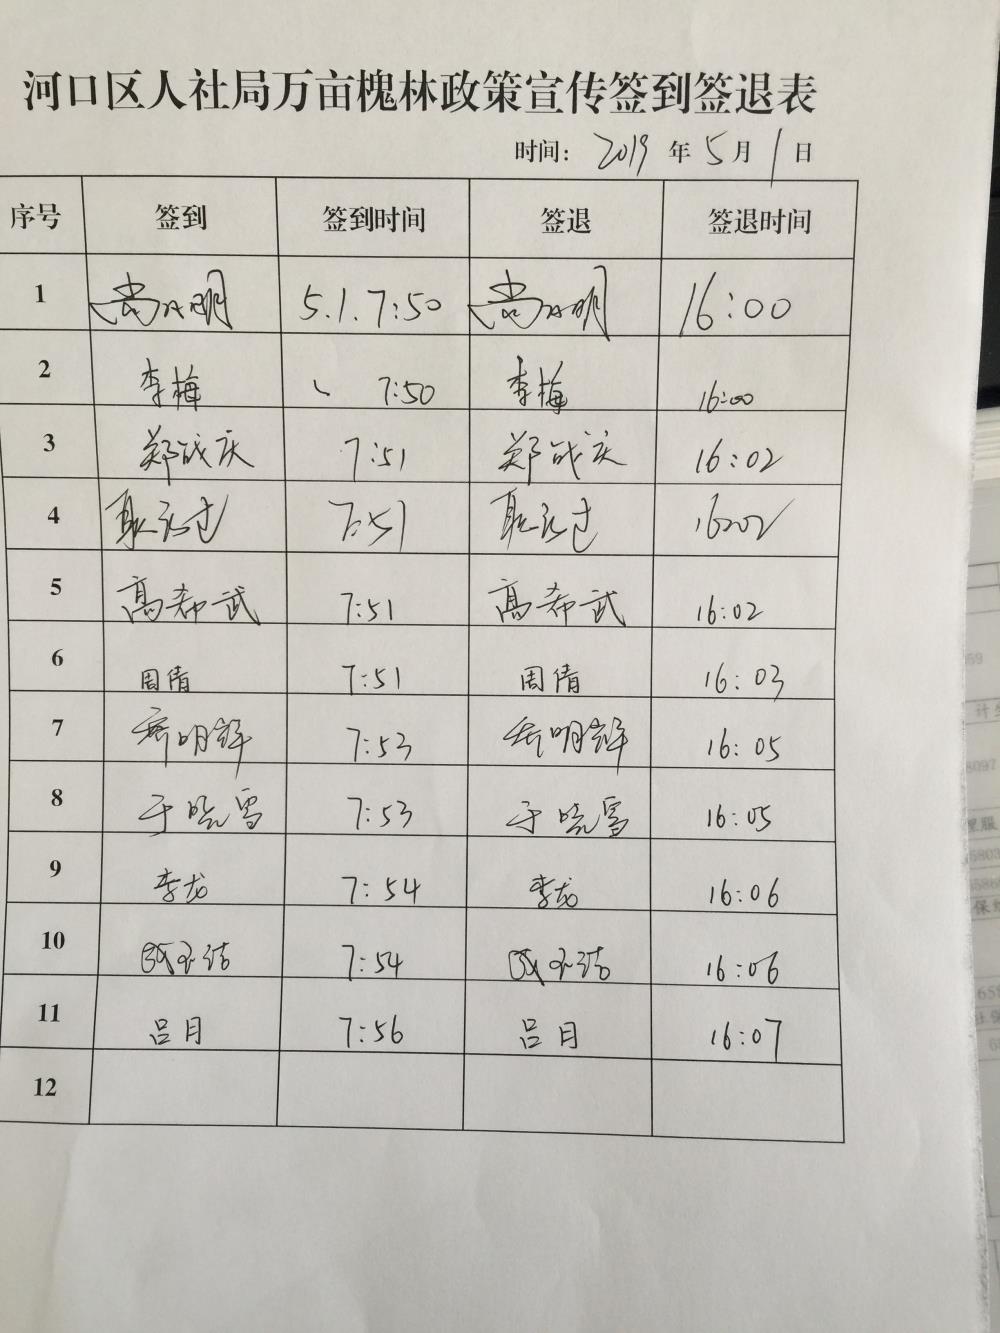 河口区人社局万亩槐林政策宣传签到签退表
时间: 2019 年 5 月 1 日
序号 签到 签到时间 签退 签退时间
1 5.1.7:50 16:00
2 李梅 、 7:50 李梅 16:00
3 郑战庆 7:51 郑战庆 16:02
4 7:51 16:02
5 高希武 7:51 高希武 16:02
6 周倩 7:51 周倩 16:03
7 7:53 16:05
8 于晓雪 7:53 于晓雪 16:05
9 李龙 7:54 李龙 16:06
10 7:54 16:06
11 吕月 7:56 吕月 16:07
12